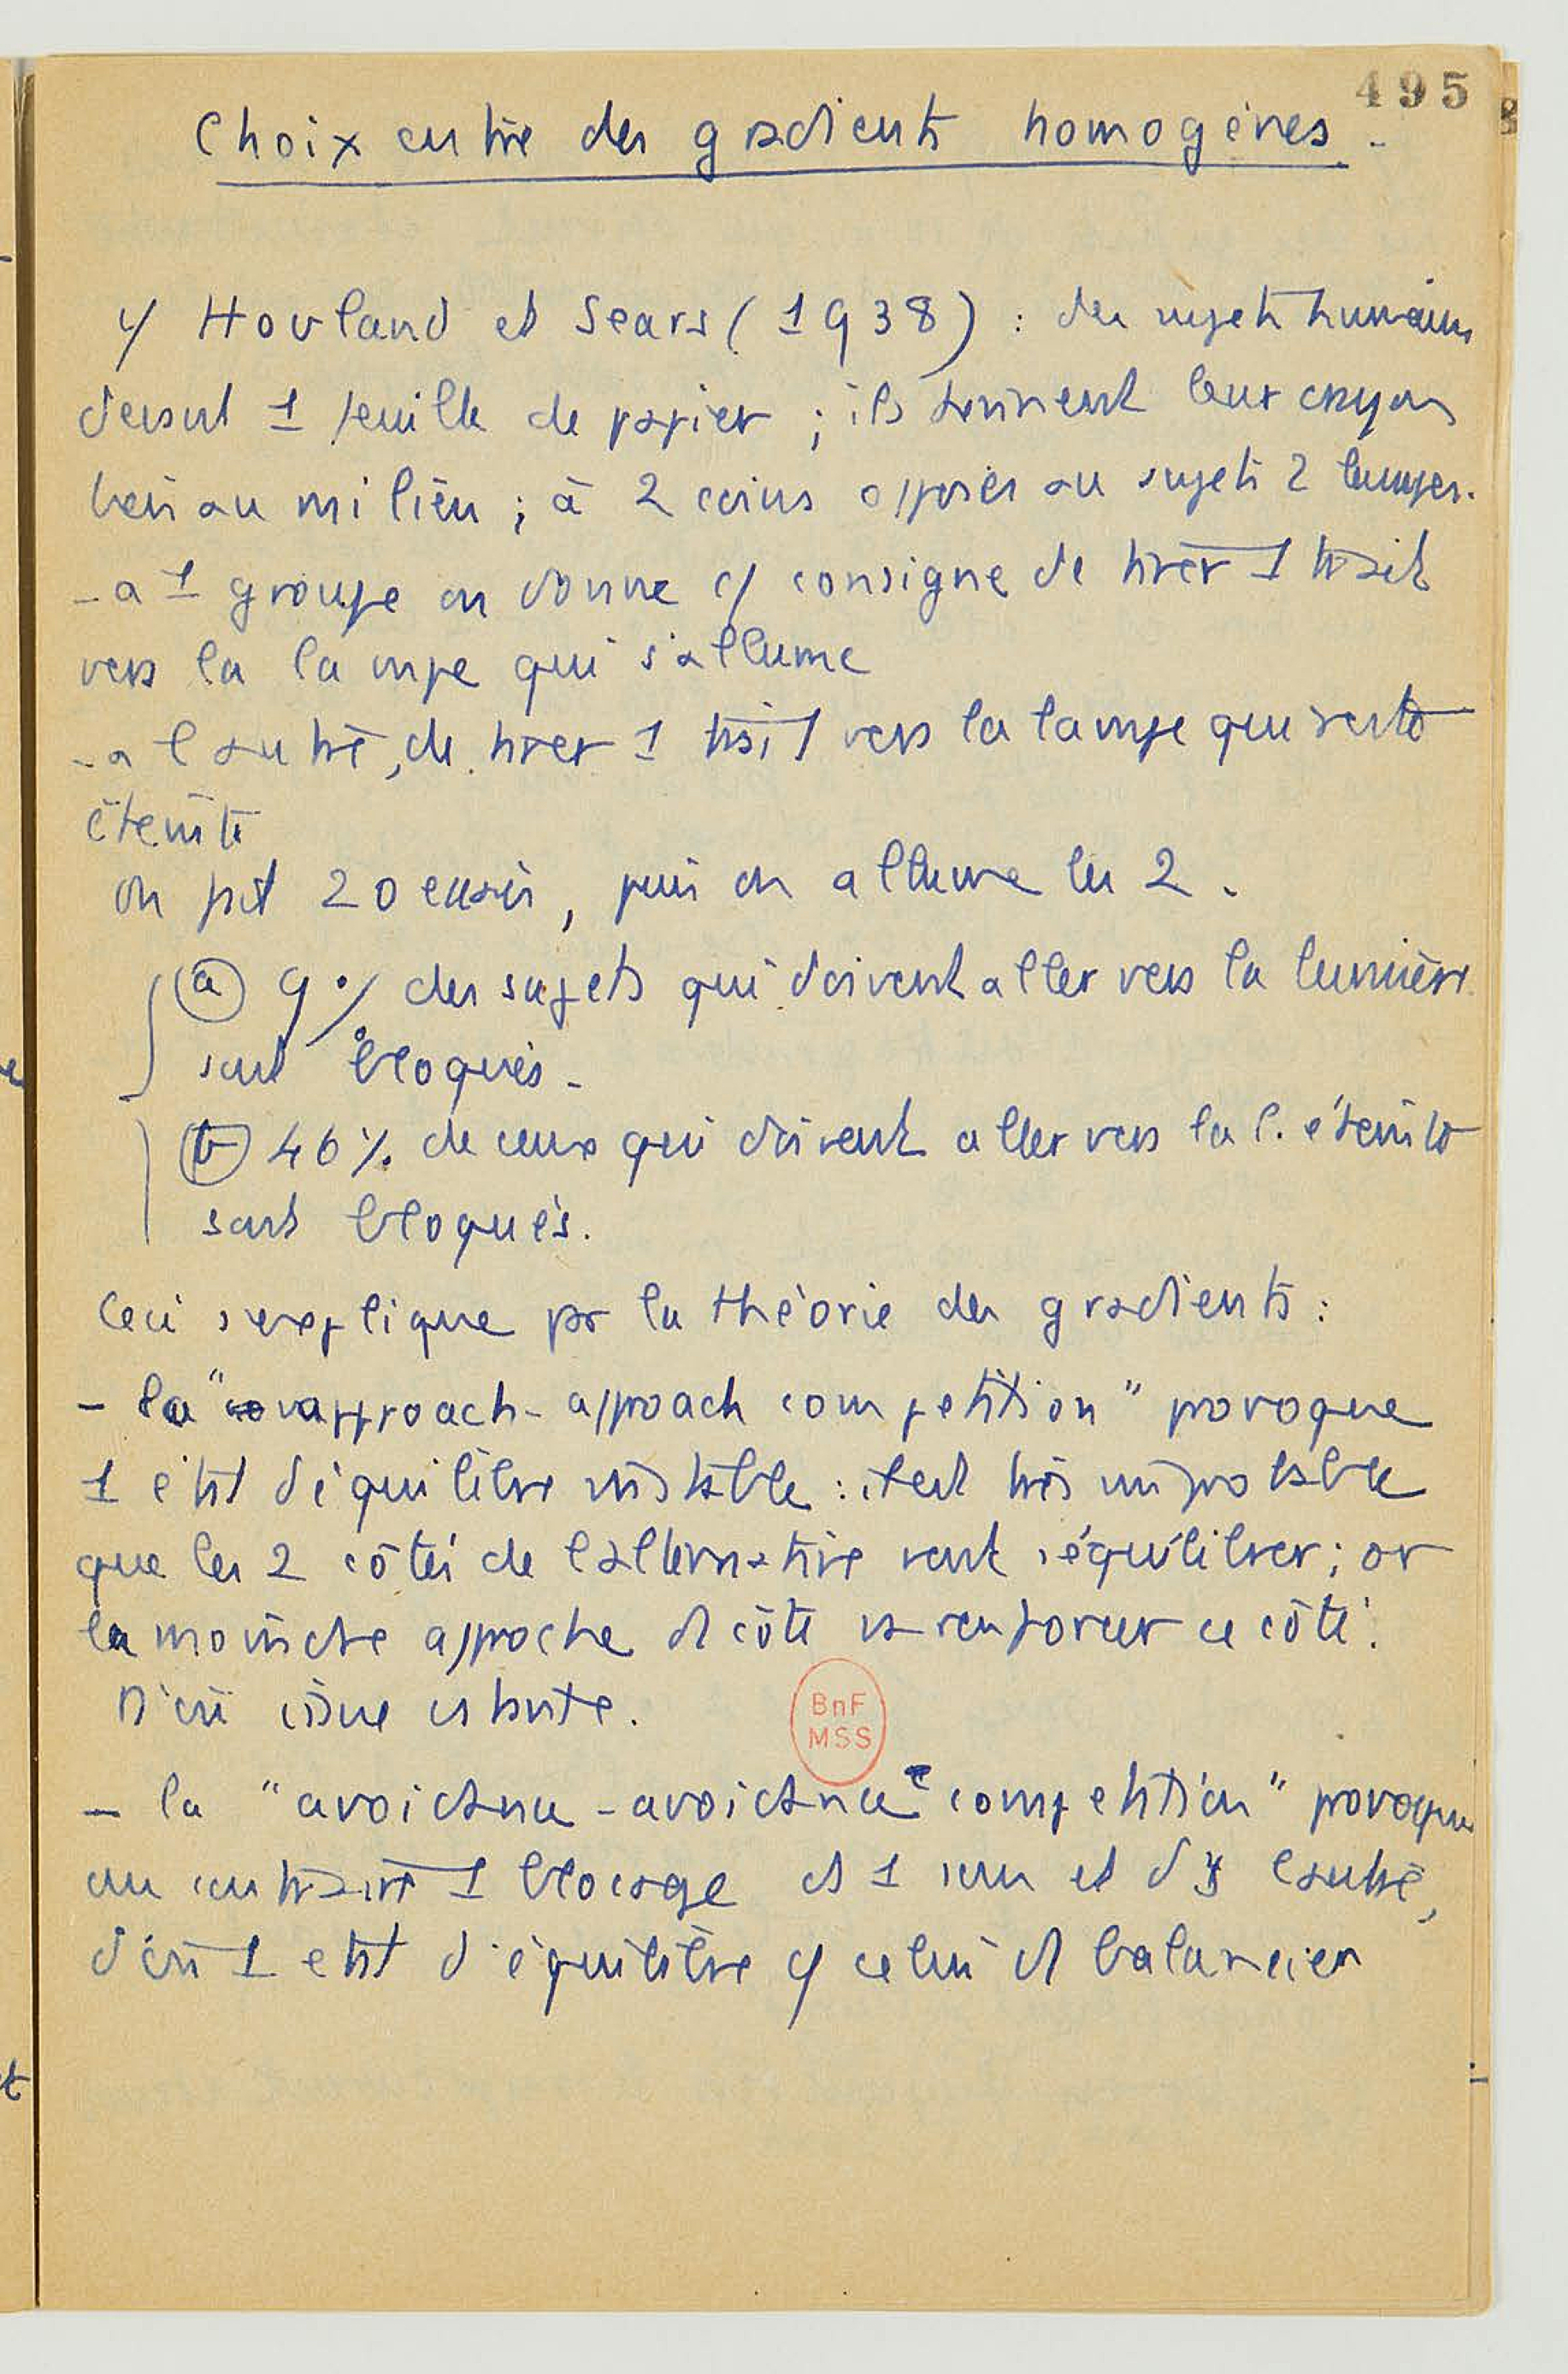 495
Choix entre des gradients homogènes.
cf Hovland et Sears (1938) : des sujets humains
devant 1 feuille de papier ; ils tiennent leur crayon
bas au milieu ; à 2 coins opposés au sujets 2 lampes.
- a 1 groupe on donne cf consigne de tirer 1 trait
vers la lampe qui s'allume
- a l'autre, de tirer 1 trait vers la lampe qui reste
éteinte
on fait 20 essais, puis on allume les 2.
(a) 9% des sujets qui doivent aller vers la lumière
sont bloqués.
(b) 46% de ceux qui doivent aller vers la l. éteinte
sont bloqués.
Ceci s'explique par la théorie des gradients :
- la " approach - approach competition" provoque
1 état d'équilibre instable : il est très improbable
que les 2 côtés de l'alternative vont s'équilibrer ; or
la moindre approche d côté va renforcer ce côté.
D'où issue
BnF
MSS
- la "avoidance - avoidance competition" provoque
au contraire 1 blocage ds 1 sens et ds l'autre,
d'où 1 état d'équilibre cf celui d balancier